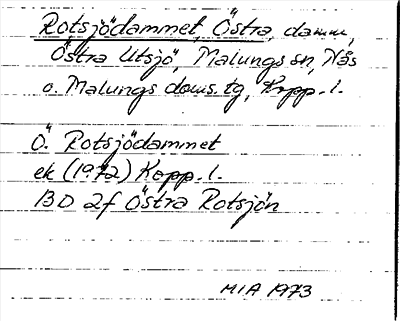 Rotsjödammet, Östra, damm,
Östra Utsjö, Malungs sn, Nås
o. Malungs doms. tg, Kopp. l.
Ö. Rotsjödammet
ek (1972) Kopp. l.
13D 2f Östra Rotsjön
MIA 1973